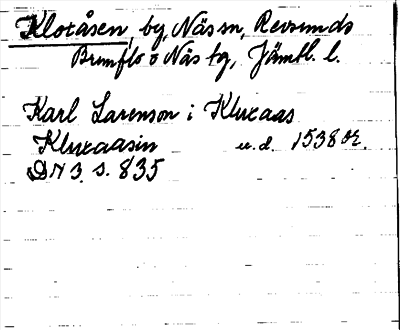 Kloxåsen, by, Näs sn, Revsunds
Brunflo o Näs tg, Jämtl. l.
Karl Larenson i Kluxaas
Kluxaasin u.d. 1538 or.
DN 3. s. 835